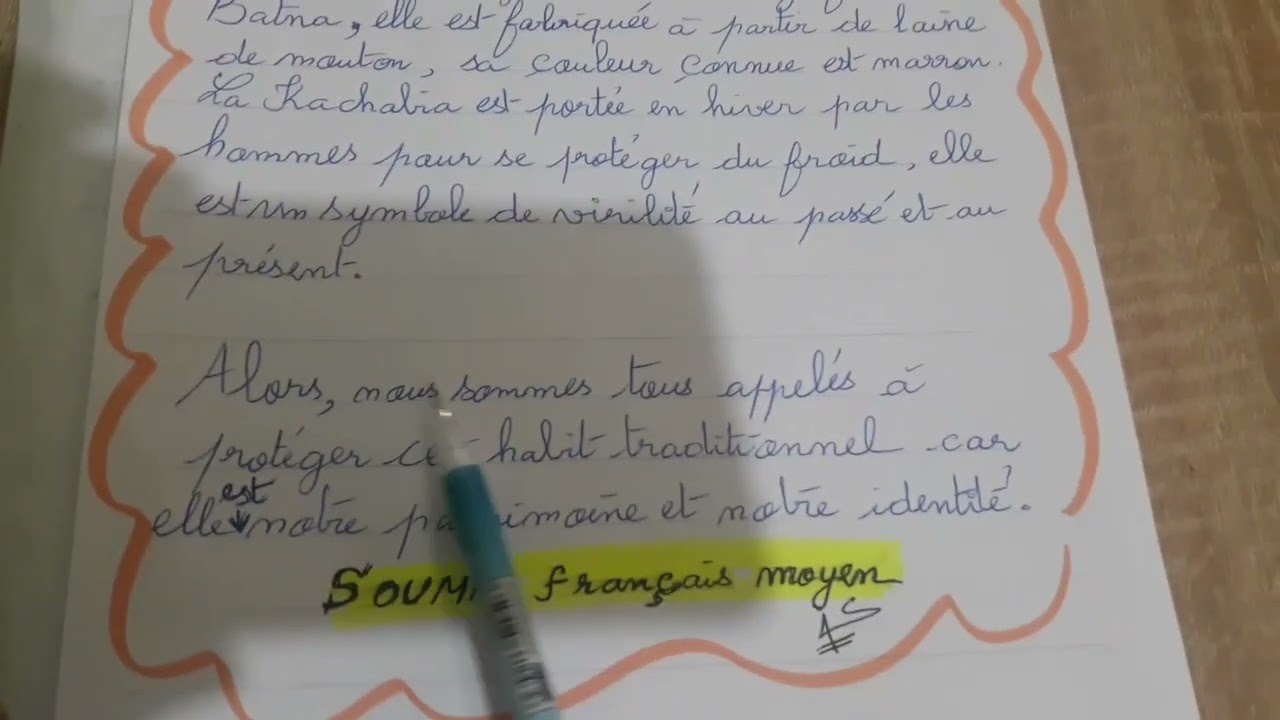 Batna, elle est fabriquée à partir de laine
de mouton, sa couleur connue est marron.
La Kachabia est portée en hiver par les
hommes pour se protéger du froid, elle
est un symbole de virilité au passé et au
présent.
Alors, nous sommes tous appelés à
protéger cet habit traditionnel car
elle est notre patrimoine et notre identité.
français moyen